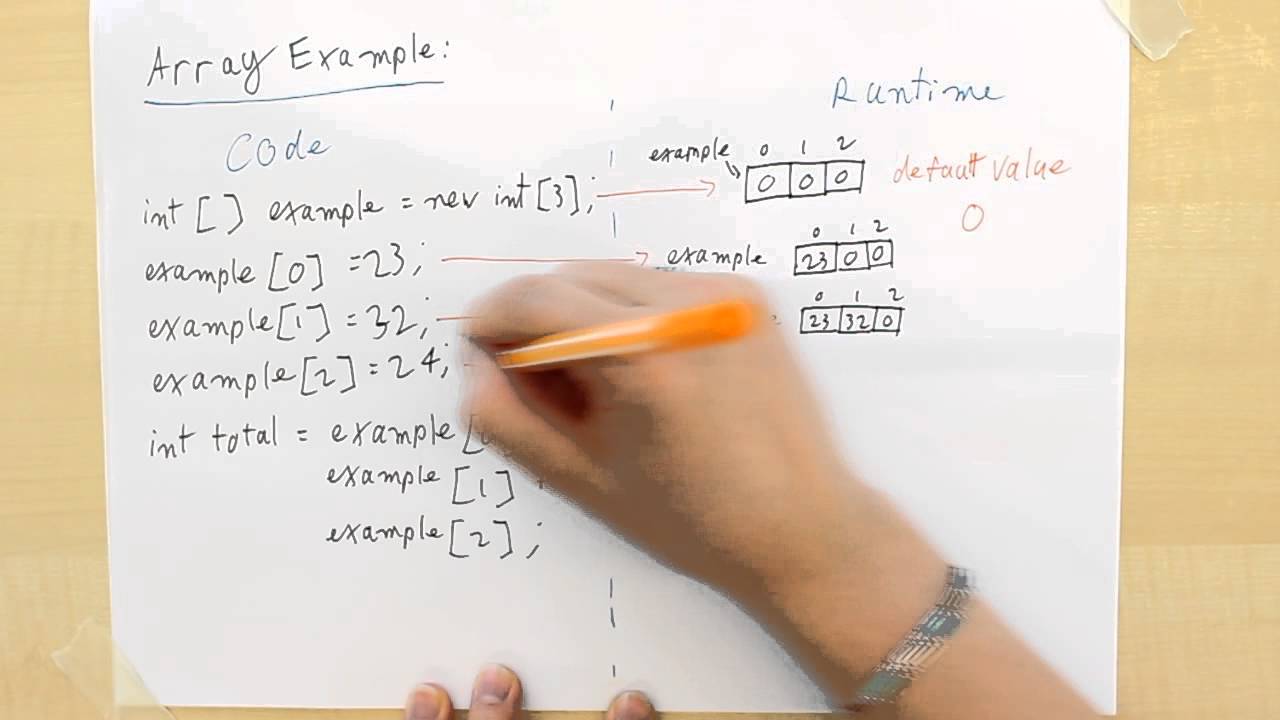 Array Example:
Code
int [ ] example = new int [3];
example [0] = 23;
example [1] = 32;
example [2] = 24;
int total = example [
example [1]
example [2] ;
Runtime
example 0 1 2
0 0 0
default value
0
0 1 2
example 23 0 0
0 1 2
23 32 0